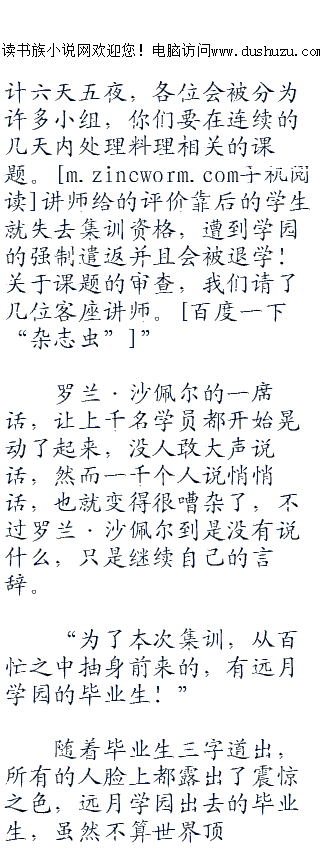 读书族小说网欢迎您！电脑访问www.dushuzu.com
计六天五夜，各位会被分为
许多小组，你们要在连续的
几天内处理料理相关的课
题。[m.zincworm.com手机阅
读]讲师给的评价靠后的学生
就失去集训资格，遭到学园
的强制遣返并且会被退学！
关于课题的审查，我们请了
几位客座讲师。[百度一下
“杂志虫”]”
罗兰·沙佩尔的一席
话，让上千名学员都开始晃
动了起来，没人敢大声说
话，然而一千个人说悄悄
话，也就变得很嘈杂了，不
过罗兰·沙佩尔到是没有说
什么，只是继续自己的言
辞。
“为了本次集训，从百
忙之中抽身前来的，有远月
学园的毕业生！”
随着毕业生三字道出，
所有的人脸上都露出了震惊
之色，远月学园出去的毕业
生，虽然不算世界顶